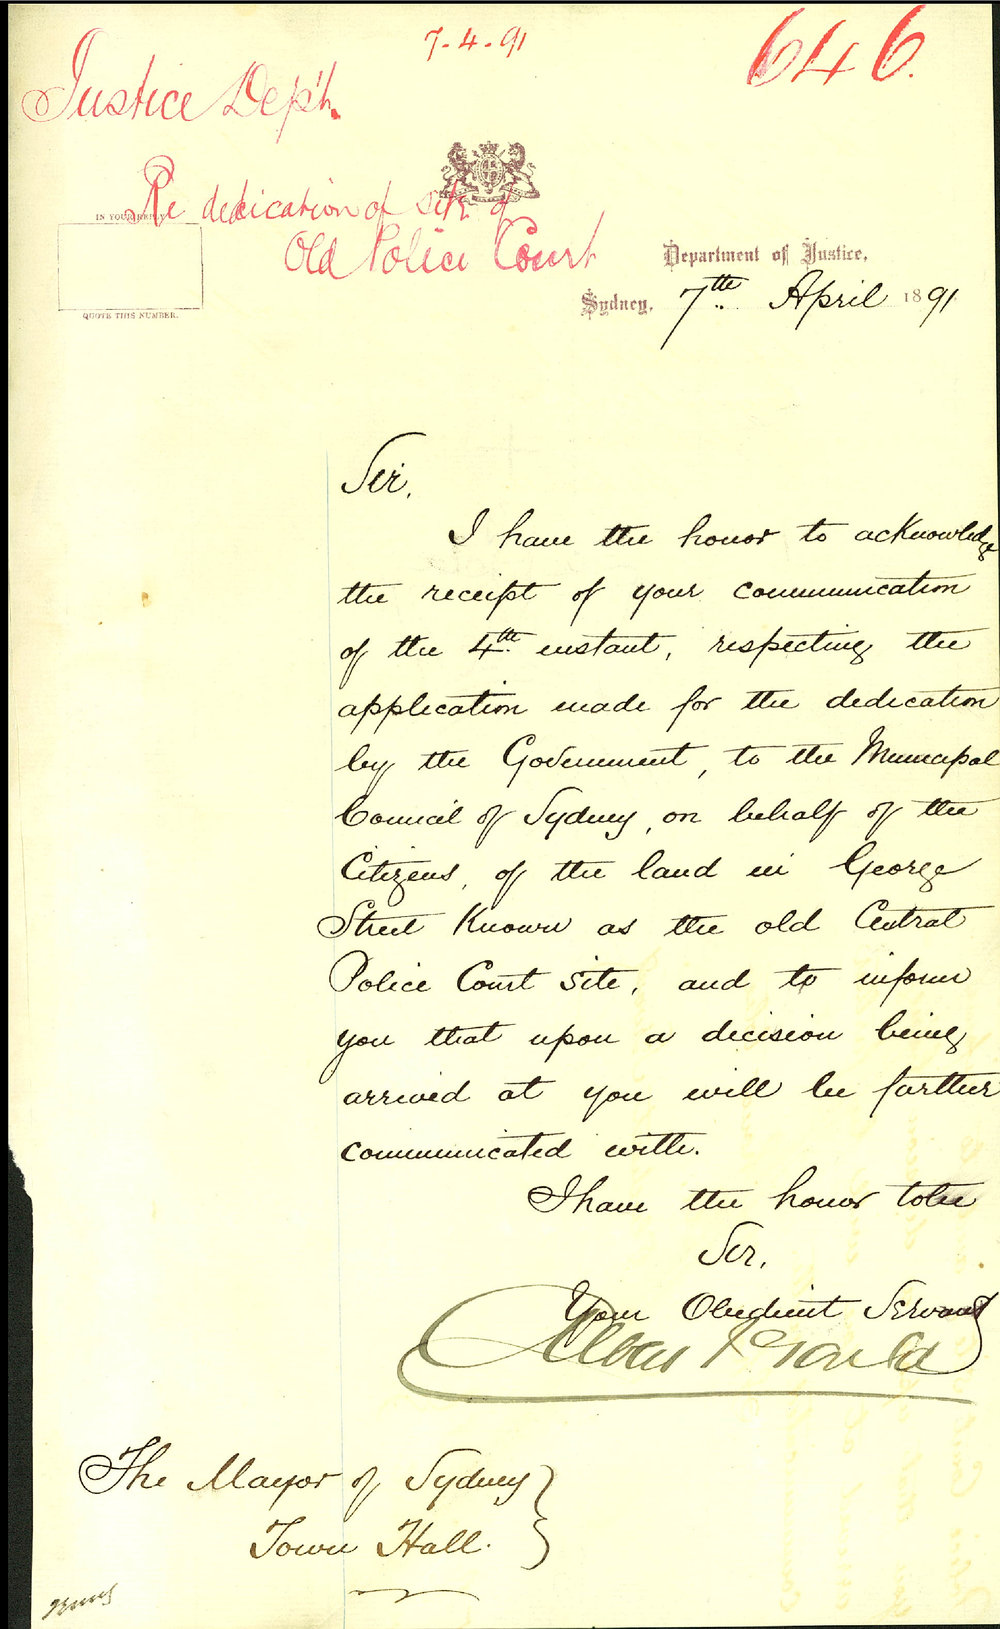 7-4-91
646.
Justice Dept.
Re dedication of site of
Old Police Court
IN YOUR REPLY
QUOTE THIS NUMBER.
Department of Justice,
Sydney, 7th April 1891
Sir,
I have the honor to acknowledge
the receipt of your communication
of the 4th instant, respecting the
application made for the dedication
by the Government, to the Municipal
Council of Sydney, on behalf of the
Citizens, of the land in George
Street Known as the old Central
Police Court site, and to inform
you that upon a decision being
arrived at you will be further
communicated with.
I have the honor to be
Sir,
Your Obedient Servant
Albert J Gould
The Mayor of Sydney
Town Hall.